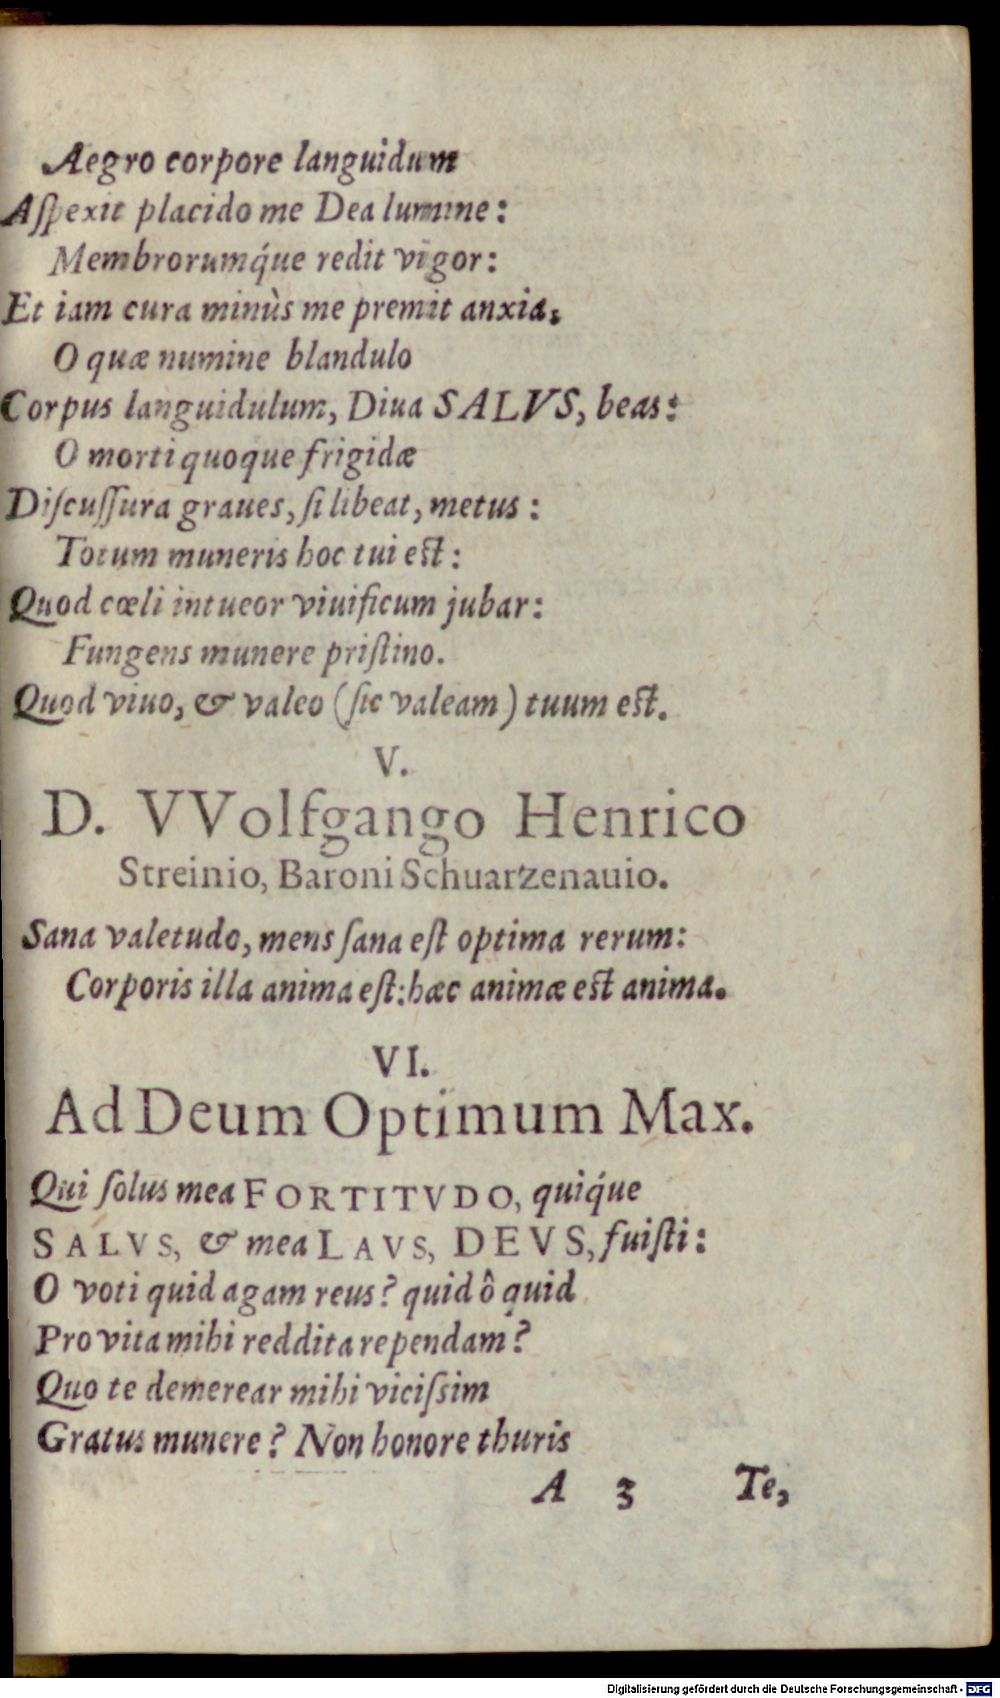 Aegro corpore languidum
Aſpexit placido me Dea lumine:
Membrorumq́ue redit vigor:
Et iam cura minùs me premit anxia,
O quæ numine blandulo
Corpus languidulum, Diua SALVS, beas:
O morti quoque frigidæ
Diſcuſſura graues, ſi libeat, metus:
Totum muneris hoc tui est:
Quod cœli intueor viuificum jubar:
Fungens munere priſtino.
Quod viuo, & valeo (ſic valeam) tuum est.
V.
D. VVolfgango Henrico
Streinio, Baroni Schuarzenauio.
Sana valetudo, mens ſana eſt optima rerum:
Corporis illa anima eſt: hæc animæ est anima.
VI.
Ad Deum Optimum Max.
Qui ſolus mea FORTITVDO, quiq́ue
SALVS, & mea LAVS, DEVS, fuiſti:
O voti quid agam reus? quid ô quid
Pro vita mihi reddita rependam?
Quo te demerear mihi viciſsim
Gratus munere? Non honore thuris
A 3 Te,
Digitalisierung gefördert durch die Deutsche Forschungsgemeinschaft - DFG